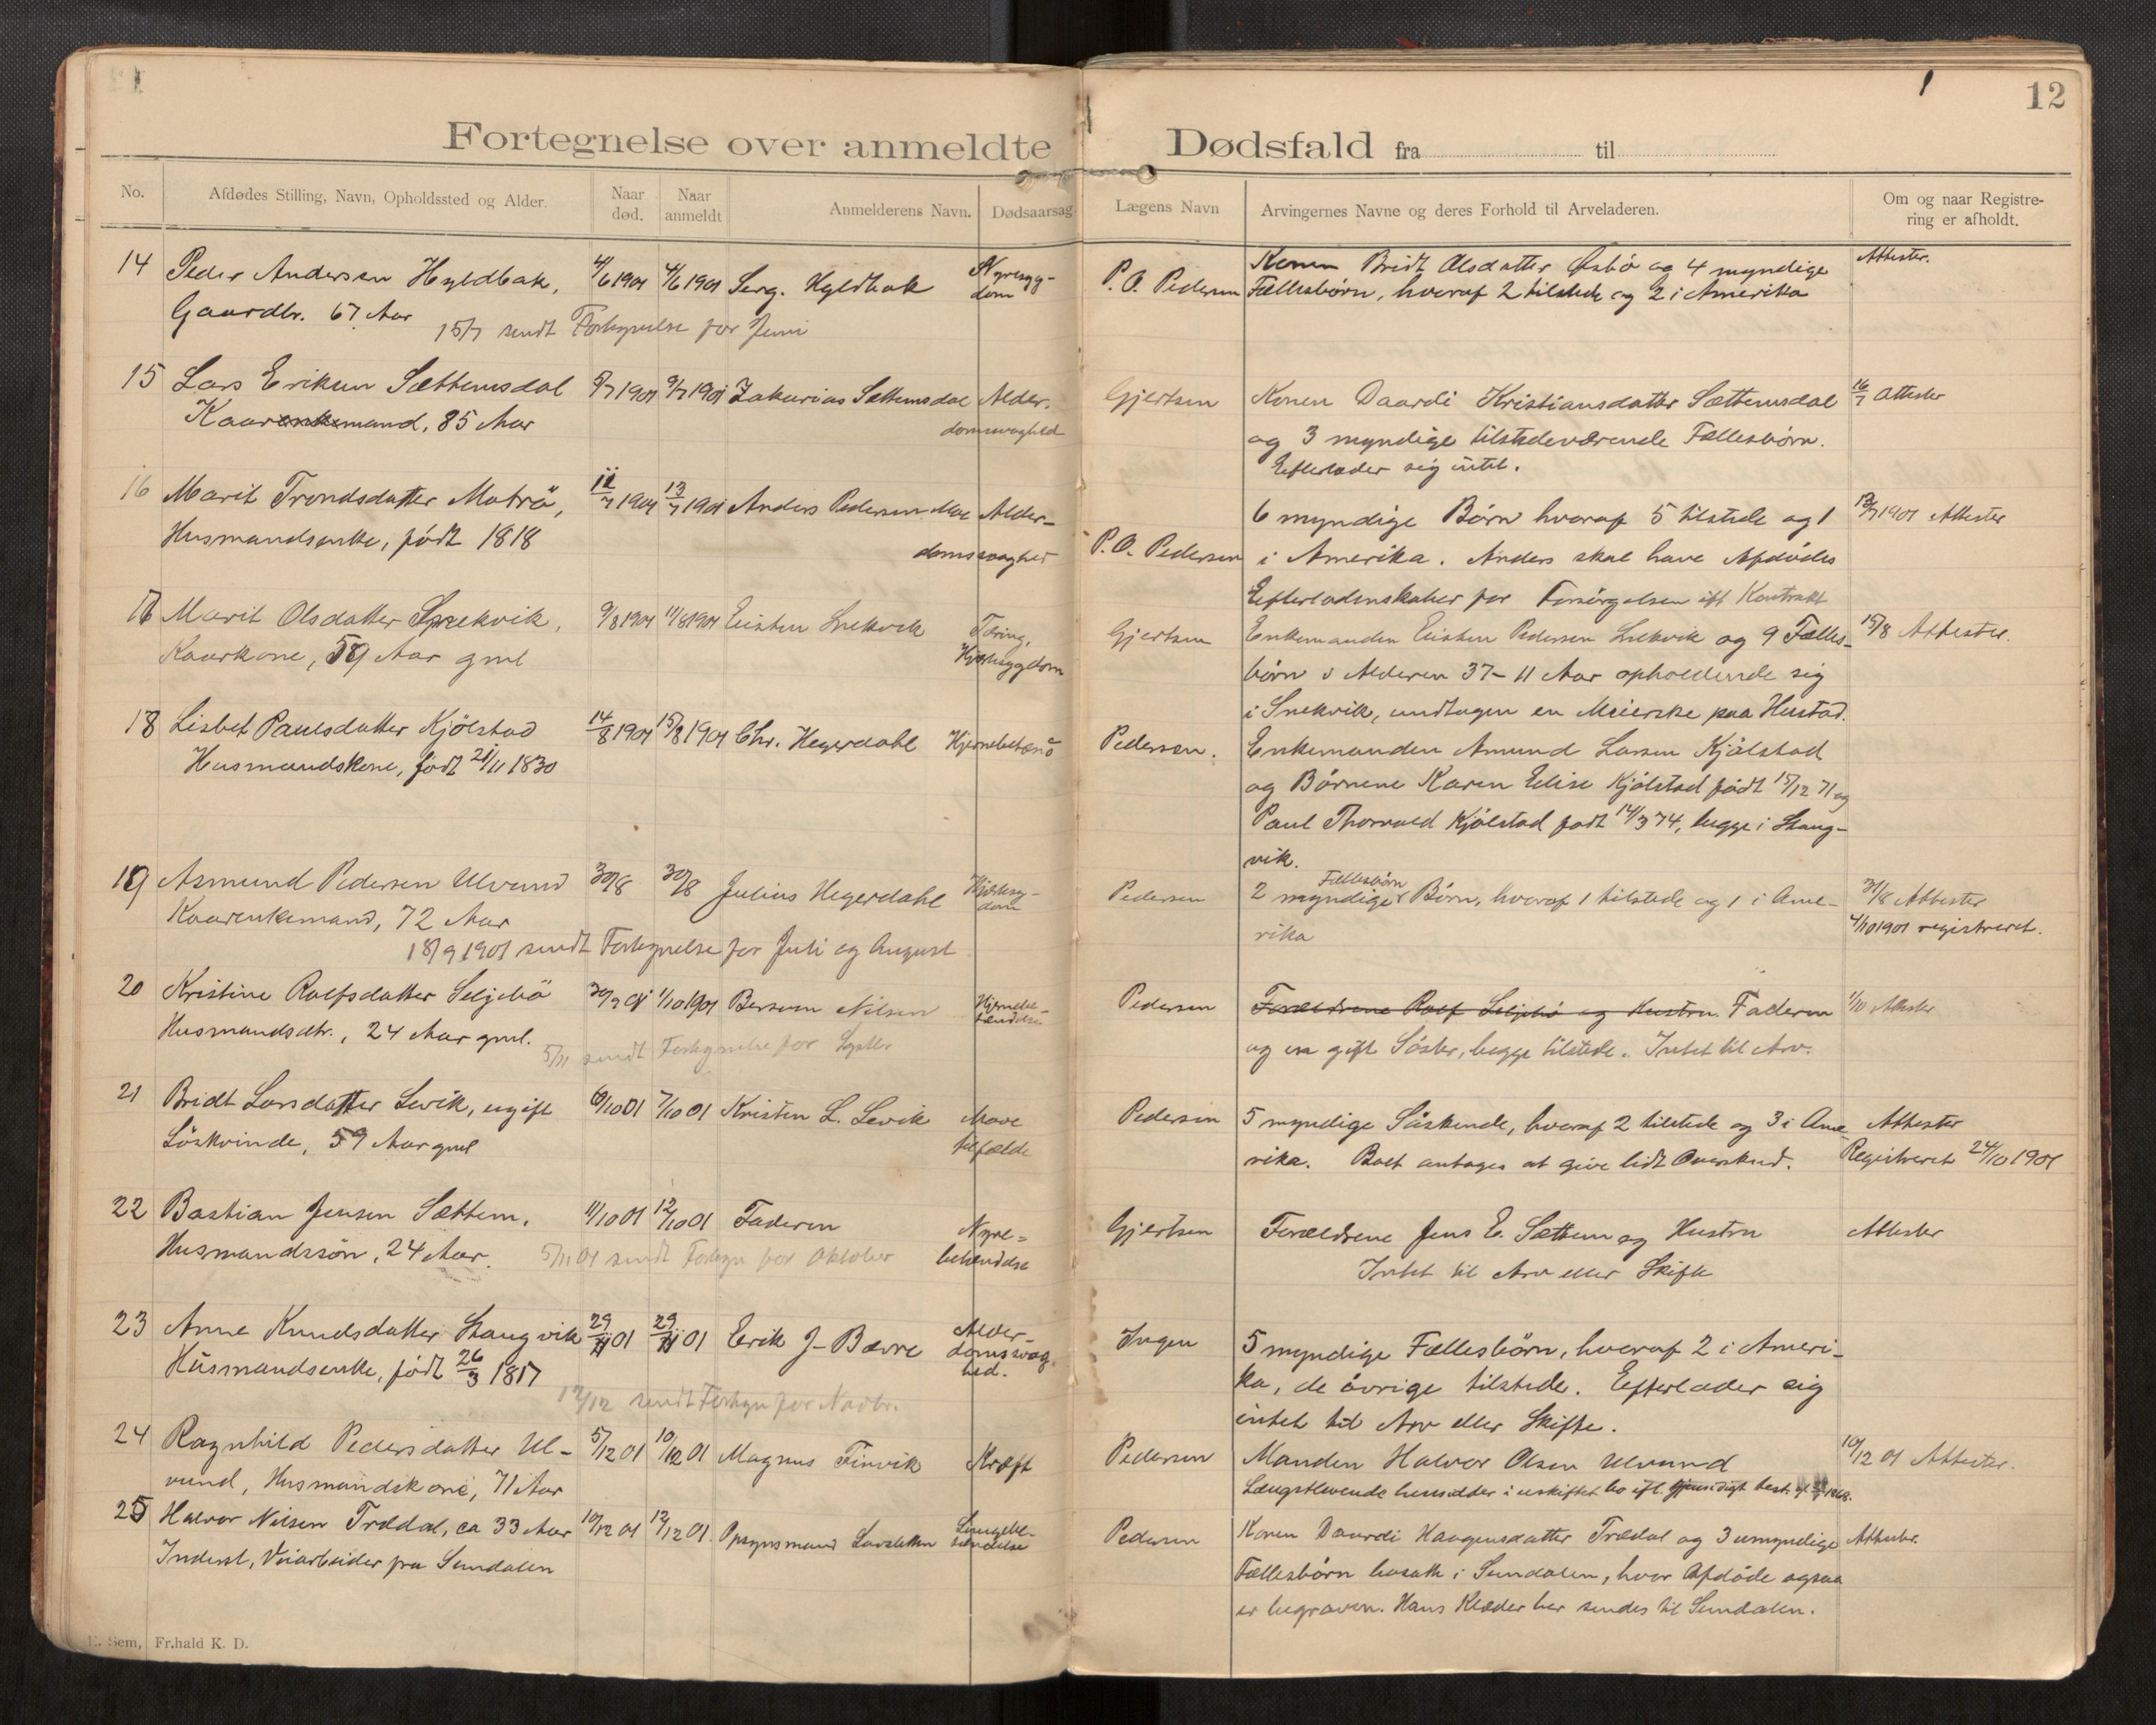 12
Fortegnelse over anmeldte Dødsfald fra til
No.
Afdødes Stilling, Navn, Opholdssted og Alder.
Naar død.
Naar anmeldt
Anmelderens Navn.
Dødsaarsag
Lægens Navn
Arvingernes Navne og deres Forhold til Arveladeren.
Om og naar Registre-
ring er afholdt.
14 Peder Andersen Hyldbak, 4/6 1901 4/6 1901 Serg. Hyldbak Nyresyg- P. O. Pedersen Konen Bridt Olsdatter Øsbö og 4 myndige Attester.
Gaardbr. 67 Aar dom Fællesbörn, hvoraf 2 tilstede og 2 i Amerika
15/7 sendt Fortegnelse for Juni
15 Lars Eriksen Sættemsdal 8/7 1901 9/7 1901 Zakarias Sættemsdal Alder- Gjertsen Konen Daardi Kristiansdatter Sættemsdal 16/7 Attester
Kaarenkemand, 85 Aar domssvaghed og 3 myndige tilstedeværende Fællesbörn.
Efterlader sig intet.
16 Marit Trondsdatter Moträ, 11/7 1901 13/7 1901 Anders Pedersen Moe Alder- 6 myndige Börn hvoraf 5 tilstede og 1 13/7 1901 Attester
Husmandsenke, födt 1818 domssvaghed P. O. Pedersen i Amerika. Anders skal have Afdödes
Efterladenskaber for Forsörgelsen ifl Kontrakt
17 Marit Olsdatter Snekvik, 9/8 1901 11/8 1901 Eristen Snekvik Tæring, Gjertsen Enkemanden Eristen Pedersen Snekvik og 9 Fælles- 15/8 Attester.
Kaarkone, 59 Aar gml Hjertesygdom börn i Alderen 37-11 Aar opholdende sig
i Snekvik, undtagen en Meierske paa Hustad.
18 Lisbet Paulsdatter Kjölstad 14/8 1901 15/8 1901 Chr. Hegerdahl Pedersen. Enkemanden Amund Larsen Kjölstad
Husmandskone, födt 21/11 1830 og Börnene Karen Elise Kjölstad födt 15/12 71 og
Paul Thorvald Kjölstad födt 14/3 74, begge i Stang-
vik.
19 Asmund Pedersen Ulvund 30/8 30/8 Julius Hegerdahl Hjertesyg- Pedersen 2 myndige Fællesbörn Börn, hvoraf 1 tilstede og 1 i Ame- 31/8 Attester
Kaarenkemand, 72 Aar dom rika 4/10 1901 registreret.
18/9 1901 sendt Fortegnelse for Juli og August
20 Kristine Rolfsdatter Seljebö 30/9 01 1/10 1901 Bersven Nilsen Hjernebe- Pedersen Forældrene Rolf Seljebö og Hustru. Faderen 1/10 Attester
Husmandsdtr., 24 Aar gml. tændelse og en gift Söster, begge tilstede. Intet til Arv.
5/11 sendt Fortegnelse for Septbr
21 Bridt Larsdatter Sevik, ugift 6/10 01 7/10 01 Kristen L. Sevik Mave Pedersen 5 myndige Söskende, hvoraf 2 tilstede og 3 i Ame- Attester
Löskvinde, 59 Aar gml tilfælde rika. Boet antages at give lidt Overskud. Registreret 24/10 1901
22 Bastian Jensen Sættem, 11/10 01 12/10 01 Faderen Nyre- Gjertsen Forældrene Jens E. Sættem og Hustru Attester
Husmandssön, 24 Aar. betændelse Intet til Arv eller Skifte
5/11 01 sendt Fortegn for Oktober
23 Anne Knudsdatter Stangvik 29/11 01 29/11 01 Erik J. Bævre Alder- Ingen 5 myndige Fællesbörn, hvoraf 2 i Ameri-
Husmandsenke, födt 26/3 1817 domssvag- ka, de övrige tilstede. Efterlader sig
hed. intet til Arv eller Skifte.
12/12 sendt Fortegn for Novbr.
24 Ragnhild Pedersdatter Ul- 5/12 01 10/12 01 Magnus Finvik Kræft Pedersen Manden Halvor Olsen Ulvund 10/12 01 Attester.
vund, Husmandskone, 71 Aar Længstlevende hensidder i uskiftet bo ifl. gjensidigt test. af 1868.
25 Halvor Nilsen Trædal, ca 33 Aar 10/12 01 12/12 01 Opsynsmand Lungebe- Pedersen Konen Daardi Haagensdatter Trædal og 3 umyndige Attester.
Inderst, Veiarbeider fra Sundalen tændelse Fællesbörn bosatte i Sundalen, hvor Afdöde ogsaa
er begraven. Hans Klæder her sendes til Sundalen.
E. Sem, Fr.hald K. D.